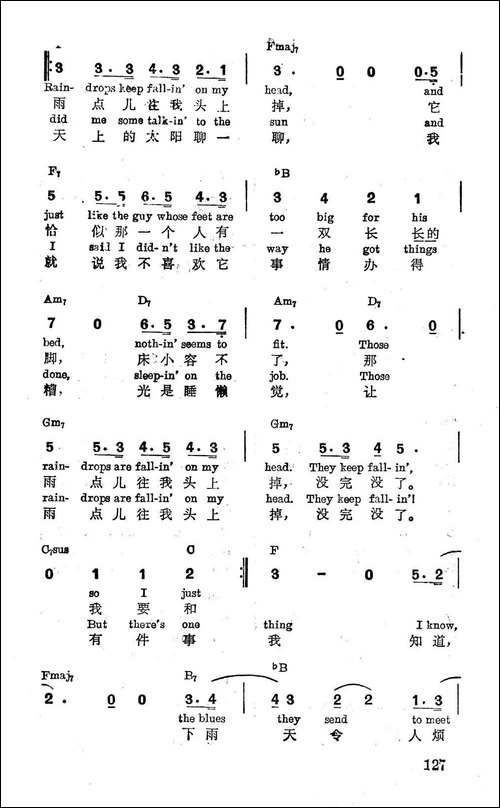 Fmaj7
3 3.3 4.3 2.1 3. 0 0 0.5
Rain- drops keep fall-in' on my head, and
雨 点 儿 往 我 头 上 掉, 它
did me some talk-in' to the sun and
天 上 的 太 阳 聊 一 聊, 我
F7 bB
5 5.5 6.5 4.3 3 4 2 1
just like the guy whose feet are too big for his
恰 似 那 一 个 人 有 一 双 长 长的
I said I did-n't like the way he got things
就 说 我 不 喜 欢 它 事 情 办 得
Am7 D7 Am7 D7
7 0 6.5 3.7 7. 0 6. 0
bed, noth-in' seems to fit. Those
脚, 床 小 容 不 了, 那
done, sleep-in' on the job. Those
糟, 光 是 睡 懒 觉, 让
Gm7 Gm7
5 5.3 4.5 4.3 5 5.3 4 5.
rain- drops are fall-in' on my head. They keep fall-in',
雨 点 儿 往 我 头 上 掉, 没 完 没 了。
rain- drops are fall-in' on my head. They keep fall-in'!
雨 点 儿 往 我 头 上 掉, 没 完 没 了。
C7sus C F
0 1 1 2 3 - 0 5.2
so I just
我 要 和
But there's one thing I know,
有 件 事 我 知 道,
Fmaj7 B7 bB
2. 0 0 3.4 4 3 2 2 1.3
the blues they send to meet
下 雨 天 令 人 烦
127